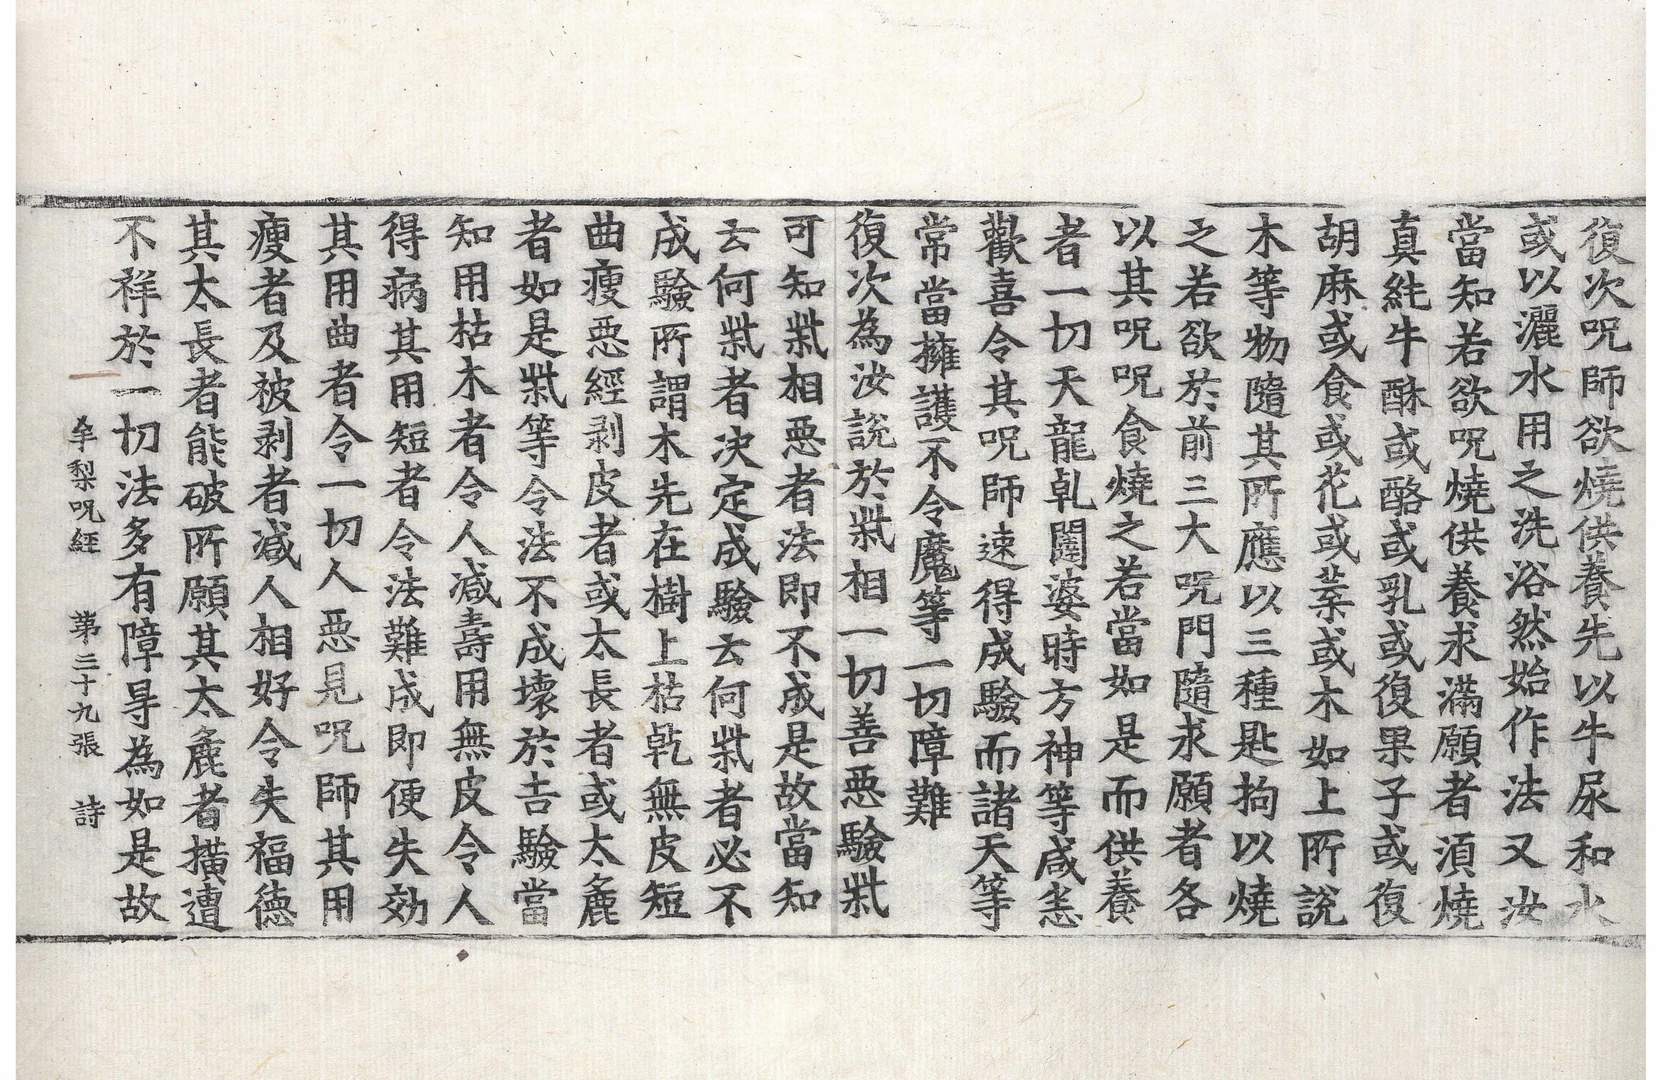 復次呪師欲燒供養先以牛尿和水
或以灑水用之洗浴然始作法又汝
當知若欲呪燒供養求滿願者湏燒
真純牛酥或酪或乳或復果子或復
胡麻或食或花或葉或木如上所說
木等物隨其所應以三種匙拘以燒
之若欲於前三大呪門隨求願者各
以其呪呪食燒之若當如是而供養
者一切天龍乹闥婆時方神等咸恚
歡喜令其呪師速得成驗而諸天等
常當擁護不令魔等一切障難
復次為汝說於柴相一切善惡驗柴
可知柴相惡者法即不成是故當知
云何柴者決定成驗云何柴者必不
成驗所謂木先在樹上枯乾無皮短
曲瘦惡經剥皮者或太長者或太麁
者如是柴等令法不成壞於吉驗當
知用枯木者令人減壽用無皮令人
得病其用短者令法難成即便失効
其用曲者令一切人惡見呪師其用
瘦者及被剥者減人相好令失福德
其太長者能破所願其太麁者撗遭
不祥於一切法多有障㝵為如是故
牟梨呪經 第三十九張 詩